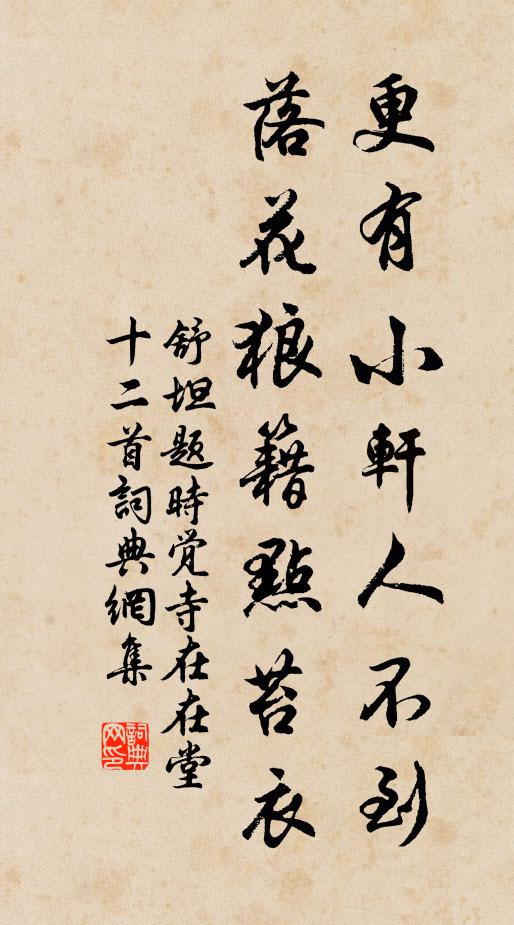 更有小軒人不到
落花狼籍點苔衣
舒坦題時覚寺在在堂
十二首詞典網集
詞典
网印